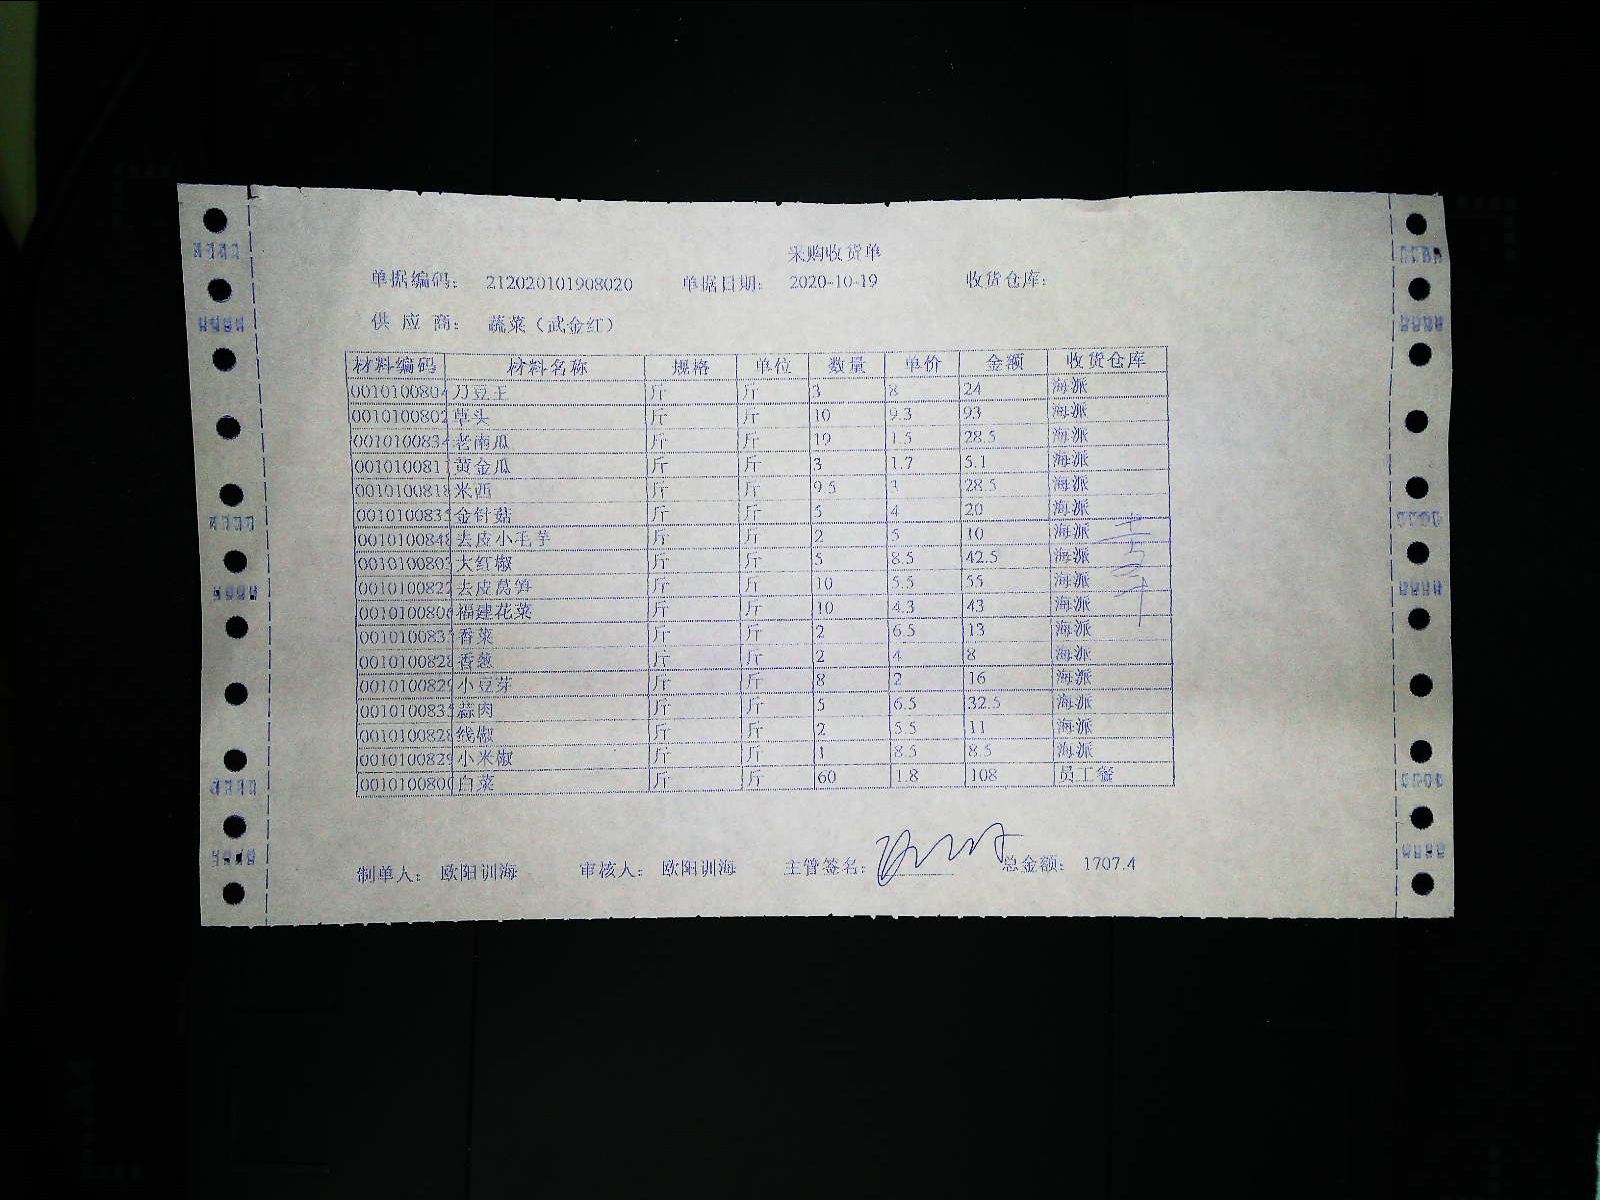 采购收货单
单据编码： 212020101908020 单据日期： 2020-10-19 收货仓库：
供 应 商： 蔬菜（武金红）
材料编码 材料名称 规格 单位 数量 单价 金额 收货仓库
0010100804 刀豆王 斤 斤 3 8 24 海派
0010100802 草头 斤 斤 10 9.3 93 海派
0010100834 老南瓜 斤 斤 19 1.5 28.5 海派
0010100811 黄金瓜 斤 斤 3 1.7 5.1 海派
0010100818 米西 斤 斤 9.5 3 28.5 海派
0010100835 金针菇 斤 斤 5 4 20 海派
0010100848 去皮小毛芋 斤 斤 2 5 10 海派
0010100803 大红椒 斤 斤 5 8.5 42.5 海派
0010100822 去皮莴笋 斤 斤 10 5.5 55 海派
0010100806 福建花菜 斤 斤 10 4.3 43 海派
0010100835 香菜 斤 斤 2 6.5 13 海派
0010100828 香葱 斤 斤 2 4 8 海派
0010100829 小豆芽 斤 斤 8 2 16 海派
0010100835 蒜肉 斤 斤 5 6.5 32.5 海派
0010100828 线椒 斤 斤 2 5.5 11 海派
0010100829 小米椒 斤 斤 1 8.5 8.5 海派
0010100800 白菜 斤 斤 60 1.8 108 员工餐
制单人： 欧阳训海 审核人： 欧阳训海 主管签名： 总金额： 1707.4